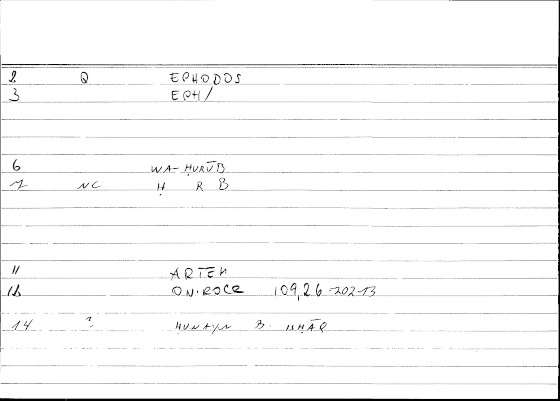 2 Q EPHODOS
3 EPH/
6 WA-ḤURŪB
7 NC Ḥ R B
11 ARTEM
12 ON.ROCR 109,26-202,13
14 ? ḤUNAYN B. ISḤĀQ